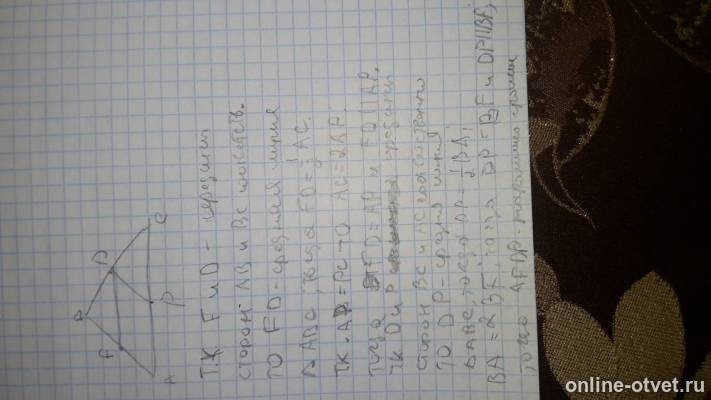 B
F D
A P C
Т.К F и D - середины
сторон AB и BC
то FD - средняя линия
△ABC, тогда FD = 1/2 AC.
т.к. AP = PC то AC = 2AP.
тогда FD = AP и FD || AP,
тк D и P середины
сторон BC и AC соответственно
то DP - средняя линия
△ABC, тогда DP = 1/2 BA,
BA = 2BF, тогда DP = BF и DP || BA,
тогда AFDP - параллелограмм
online-otvet.ru